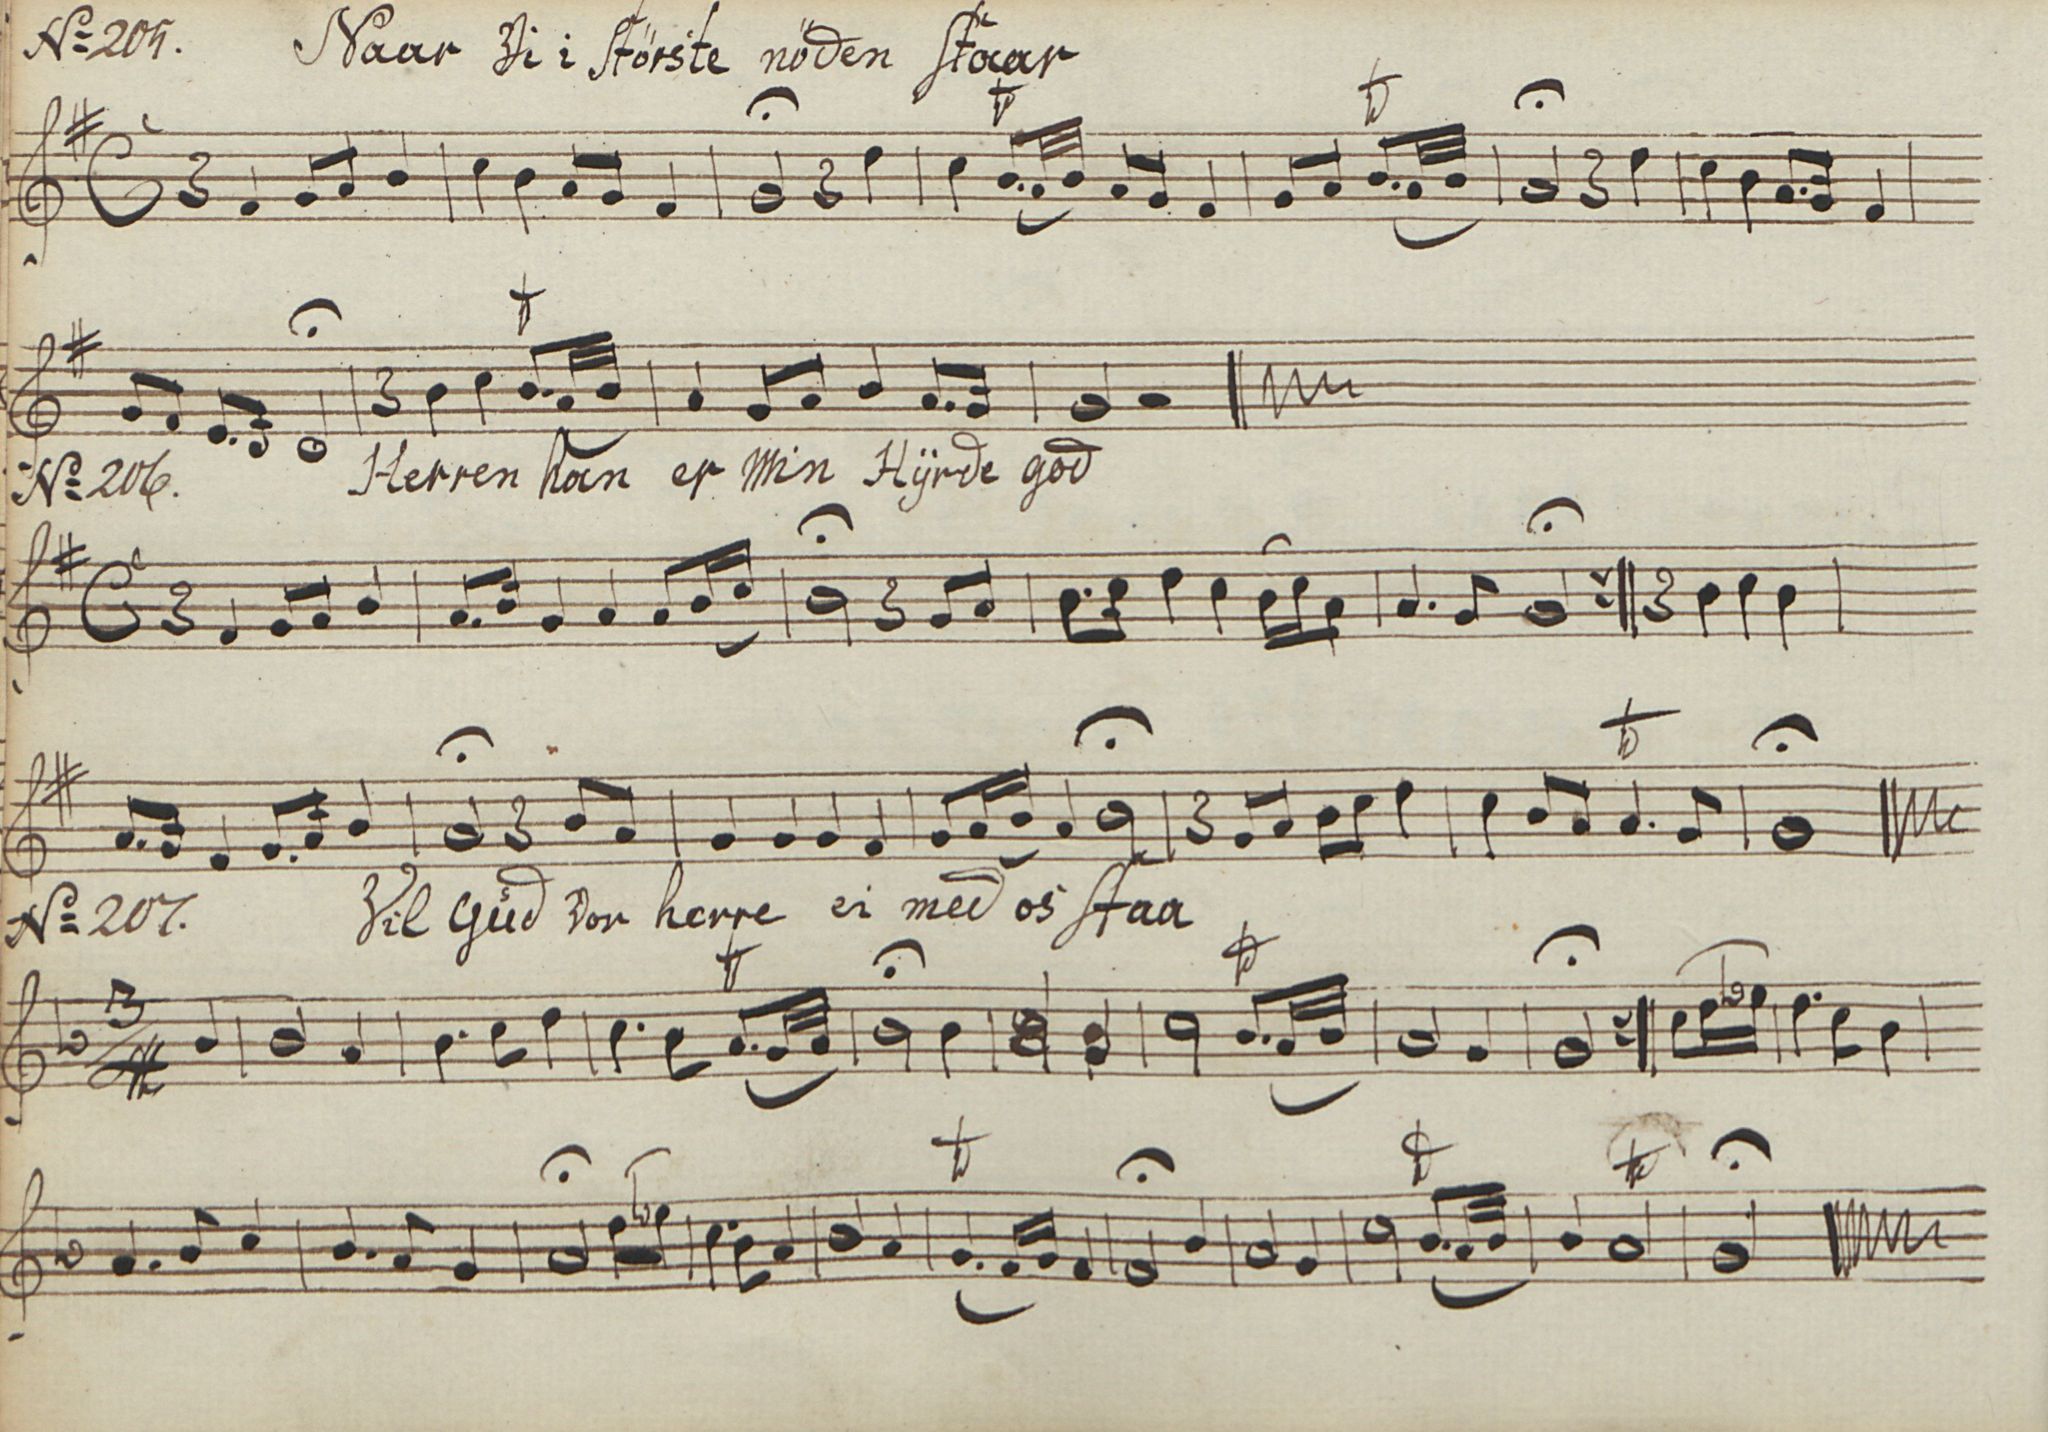 No 205. Naar Vi i störste nöden staar
No 206. Herren han er Min Hÿrde god
No 207. Vil Gud Vor herre ei med os staa